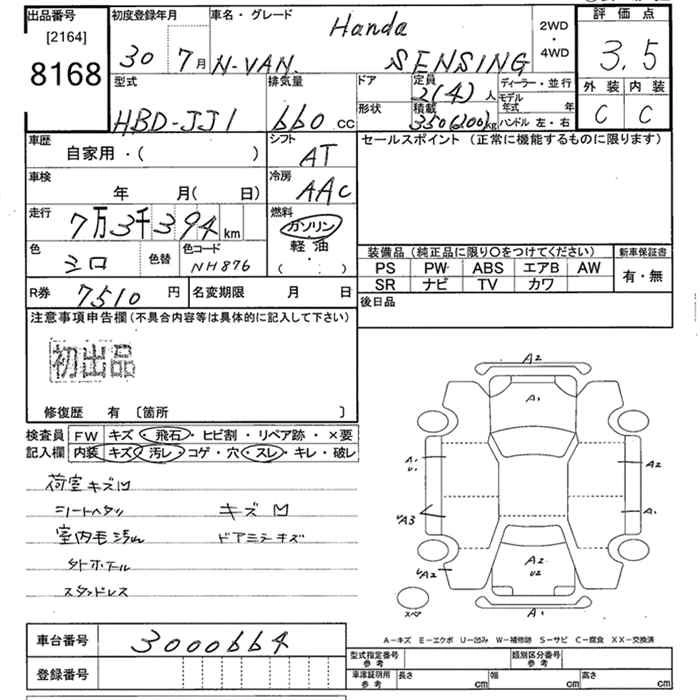 出品番号
[2164]
8168
初度登録年月
30 7月
車名・グレード
Honda
N-VAN SENSING
2WD
・
4WD
評価点
3.5
外装 内装
C C
型式
HBD-JJ1
排気量
660 cc
ドア
形状
定員
2(4)人
積載
350(200)kg
ディーラー・並行
モデル年式 年
ハンドル 左・右
車歴
自家用・( )
シフト
AT
セールスポイント (正常に機能するものに限ります)
車検
年 月( 日)
冷房
AAC
走行
7万3千394km
燃料
ガソリン
軽油
( ・ )
色
シロ
色替
色コード
NH876
装備品(純正品に限り〇をつけてください)
新車保証書
PS PW ABS エアB AW
SR ナビ TV カワ
有・無
R券 7510円
名変期限 月 日
後日品
注意事項申告欄(不具合内容等は具体的に記入して下さい)
初出品
修復歴 有 〔箇所 〕
検査員記入欄
FW キズ・飛石・ヒビ割・リペア跡・×要
内装 キズ・汚レ・コゲ・穴・スレ・キレ・破レ
荷室キズ凹
シートヘタリ キズ 凹
室内毛汚れ ドアミラーキズ
スタッドレス
A2
A1
A1
U1
A2
UA3
A1
A2
U2
UA2
スペア
A1
A-キズ E-エクボ U-凹み W-補修跡 S-サビ C-腐食 XX-交換済
車台番号 3000664
登録番号
型式指定番号
参考
類別区分番号
参考
車庫証明用
参考
長さ cm 幅 cm 高さ cm